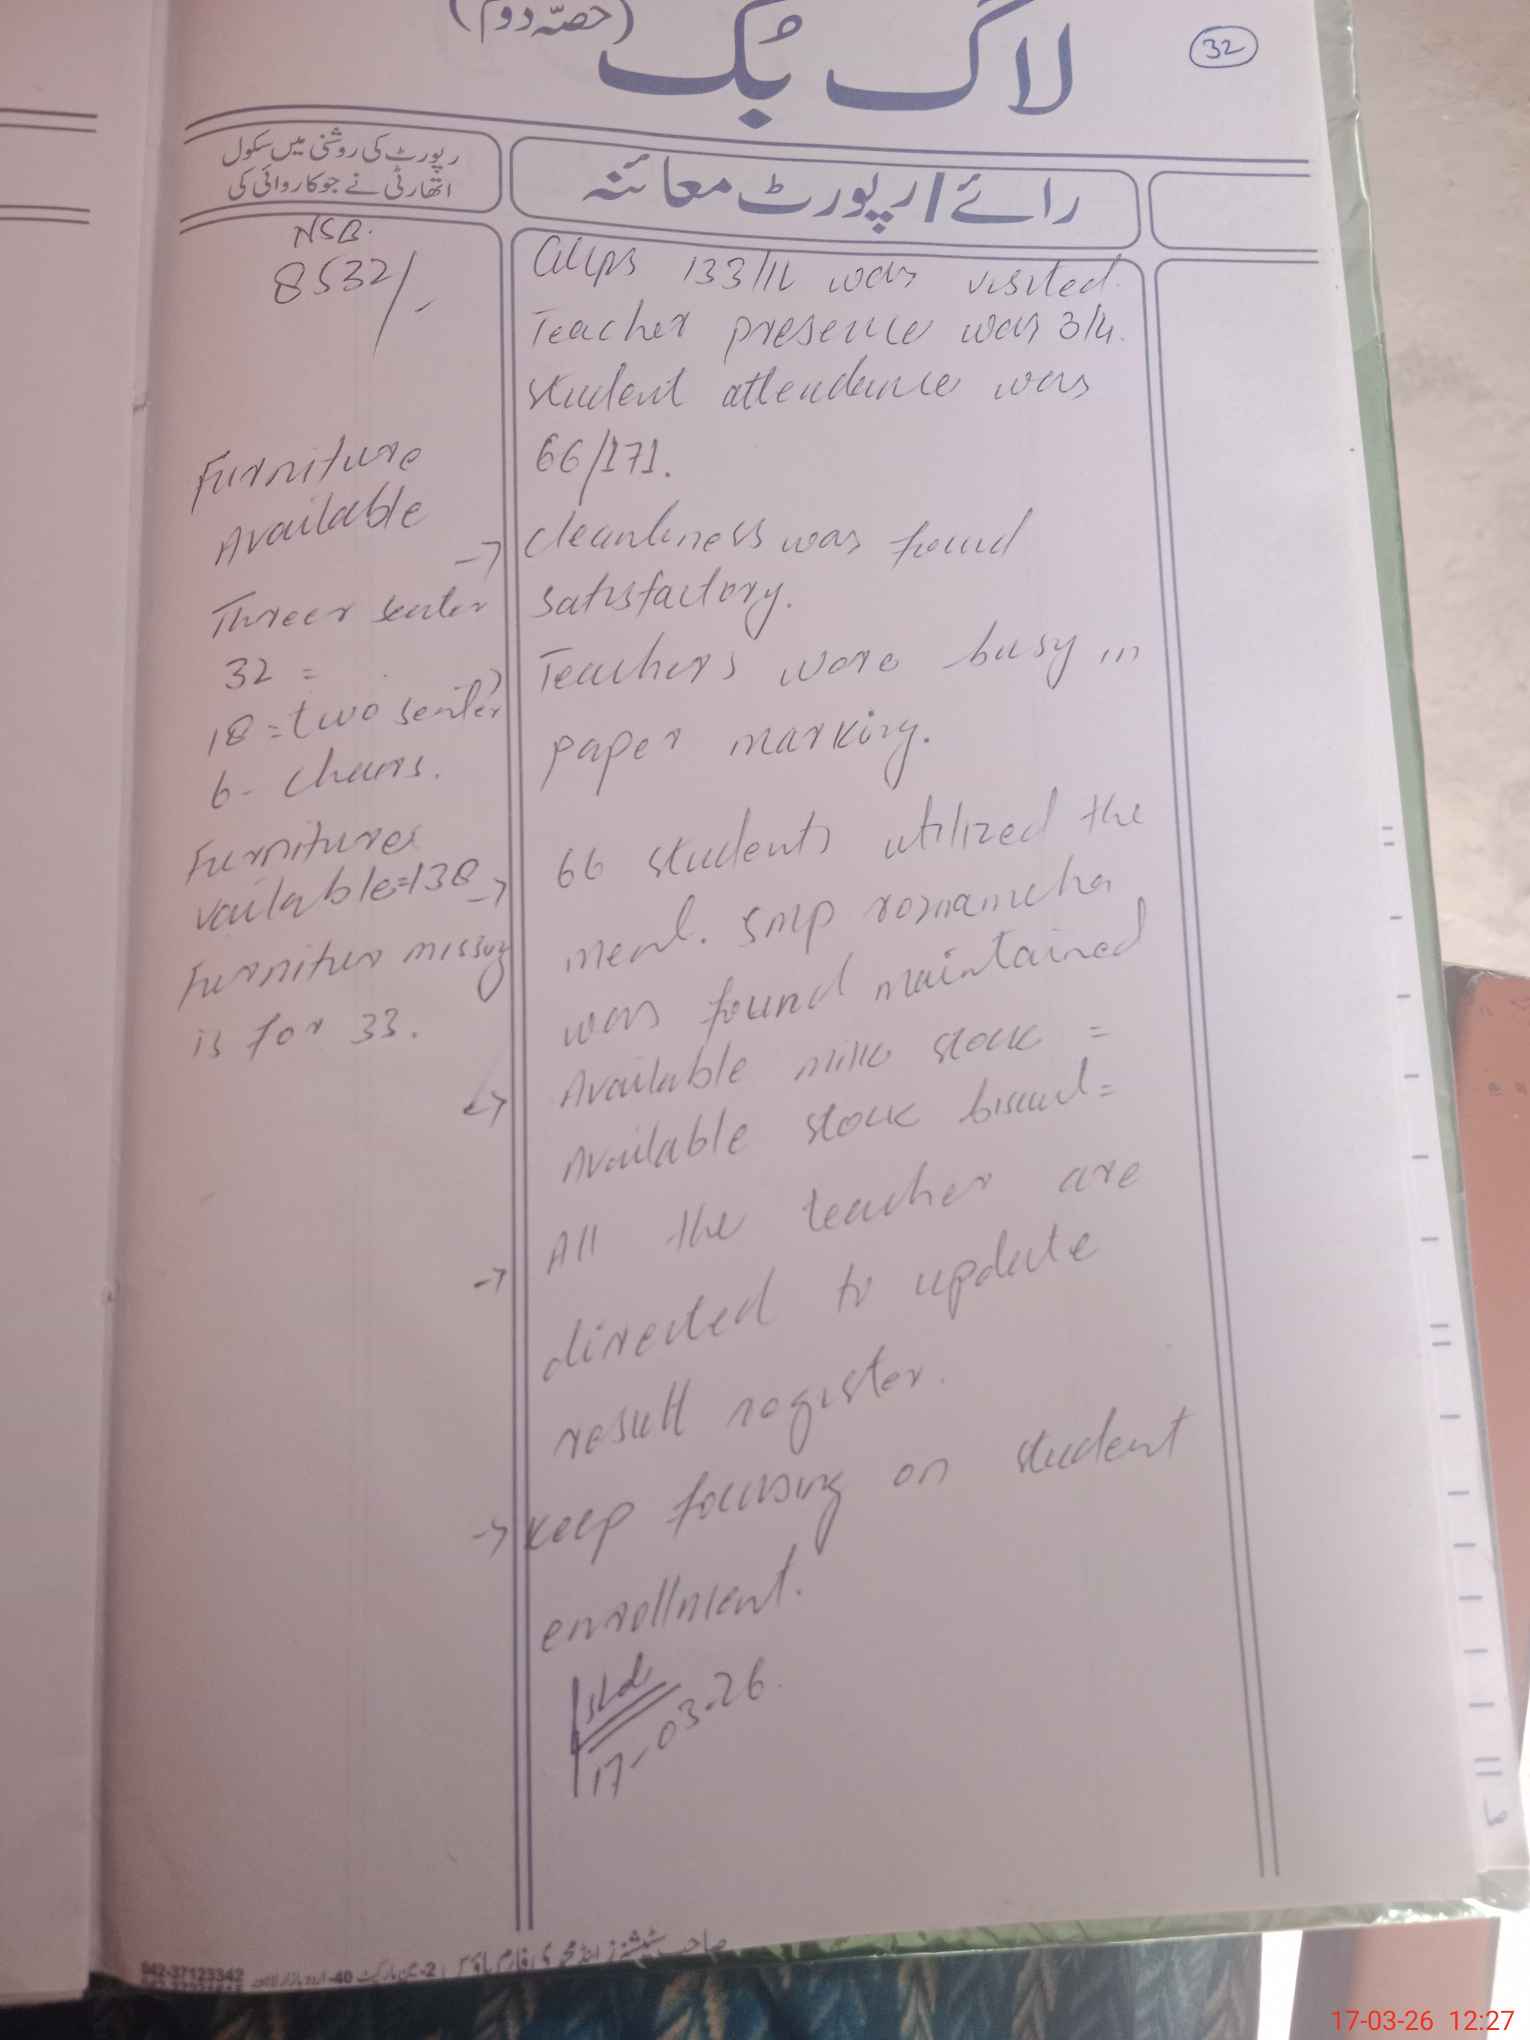 لاگ بک (حصّہ دوم)
32
رپورٹ کی روشنی میں سکول
اتھارٹی نے جو کاروائی کی
رائے / رپورٹ معائنہ
NSB.
8532/-
Furniture
Available
Threer seater
32 =
18 = two seater
6 - Chairs.
Furnitures
vailable=138
Furnitur missing
is for 33.
133/1L was visited.
Teacher presence was 3/4.
student attendance was
66/171.
→ cleanliness was found
satisfactory.
→ Teachers were busy in
paper marking.
→ 66 students utilized the
meal. SMP roznamcha
was found maintained
→ Available milk stock =
Available stock biscuit =
→ All the teacher are
directed to update
result register.
→ Keep focusing on student
enrollment.
17-03-26.
042-37123342
17-03-26 12:27